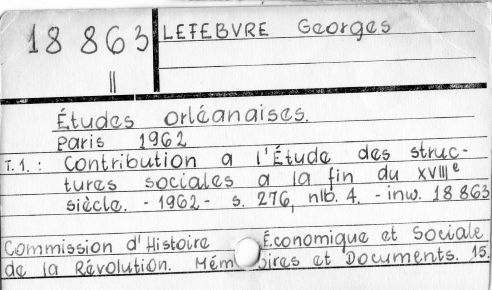 18 863 LEFEBVRE Georges
II
Études orléanaises.
Paris 1962
T. 1. : Contribution a l'Étude des struc-
tures sociales a la fin du XVIIIe
siècle. - 1962 - s. 276, nlb. 4. - inw. 18 863
Commission d'Histoire Économique et Sociale
de la Révolution. Mémoires et Documents. 15.